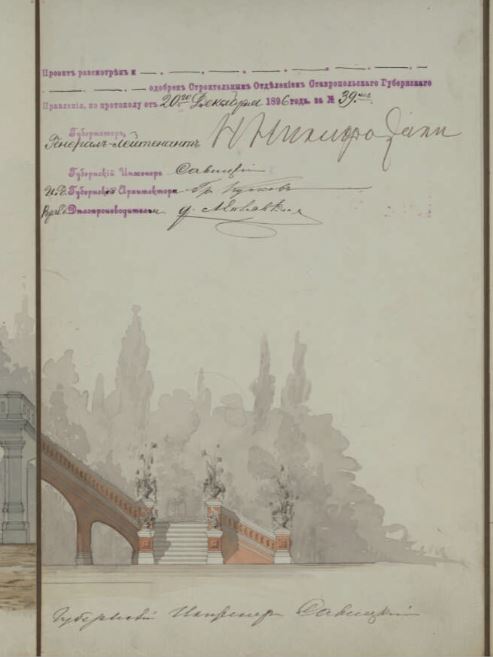 Проектъ разсмотрѣнъ и
одобренъ Строительнымъ Отдѣленіемъ Ставропольскаго Губернскаго
Правленія, по протоколу отъ 20го Декабря 1896 года, за № 39
Губернаторъ,
Генералъ-Лейтенантъ Н Никифораки
Губернскій Инженеръ Савицкій
И.д. Губернскаго Архитектора Гр. Кусковъ
Дѣлопроизводитель
Губернскій Инженеръ Савицкій